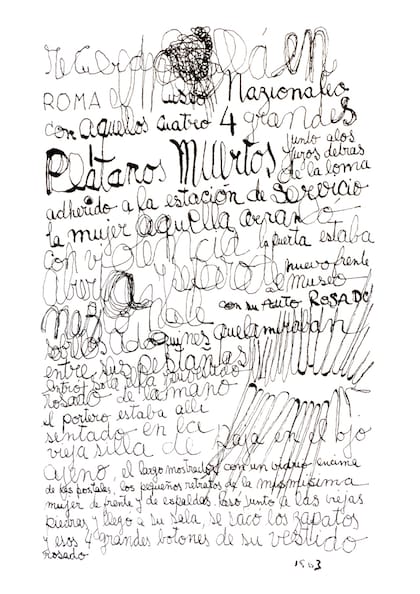 Recuerdo allá en
ROMA el Museo Nazionaleo
con aquellos cuatro 4 grandes
Plátanos Muertos junto a los
muros detras
de la loma
adherido a la estación de Servicio
la mujer aquella arrancó
con violencia la puerta estaba
abierta y
nuevo frente
al museo
con su Auto ROSADO
sobre adoquines que la miraban
entre sus pestañas
entró sola
rosado de la mano
el portero estaba alli
sentado en la
vieja silla de paja en el ojo
ajeno, el largo mostrador con un vidrio encima
de las postales, los pequeños retratos de la mismisima
mujer de frente y de espaldas. Pasó junto a las viejas
piedras y llegó a su sala, se sacó los zapatos
y esos 4 grandes botones de su vestido
rosado
1963